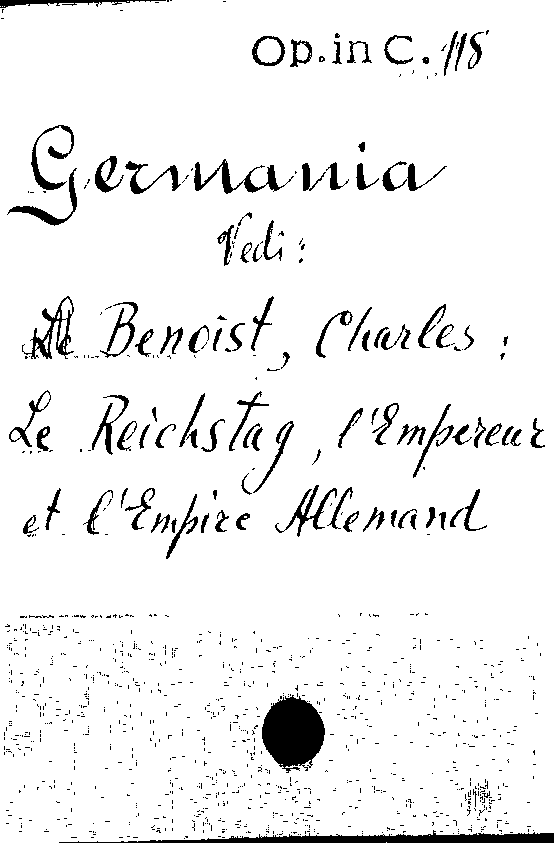 Op. in C. 118
Germania
Vedi:
Benoist, Charles:
Le Reichstag, l'Empereur
et l'Empire Allemand